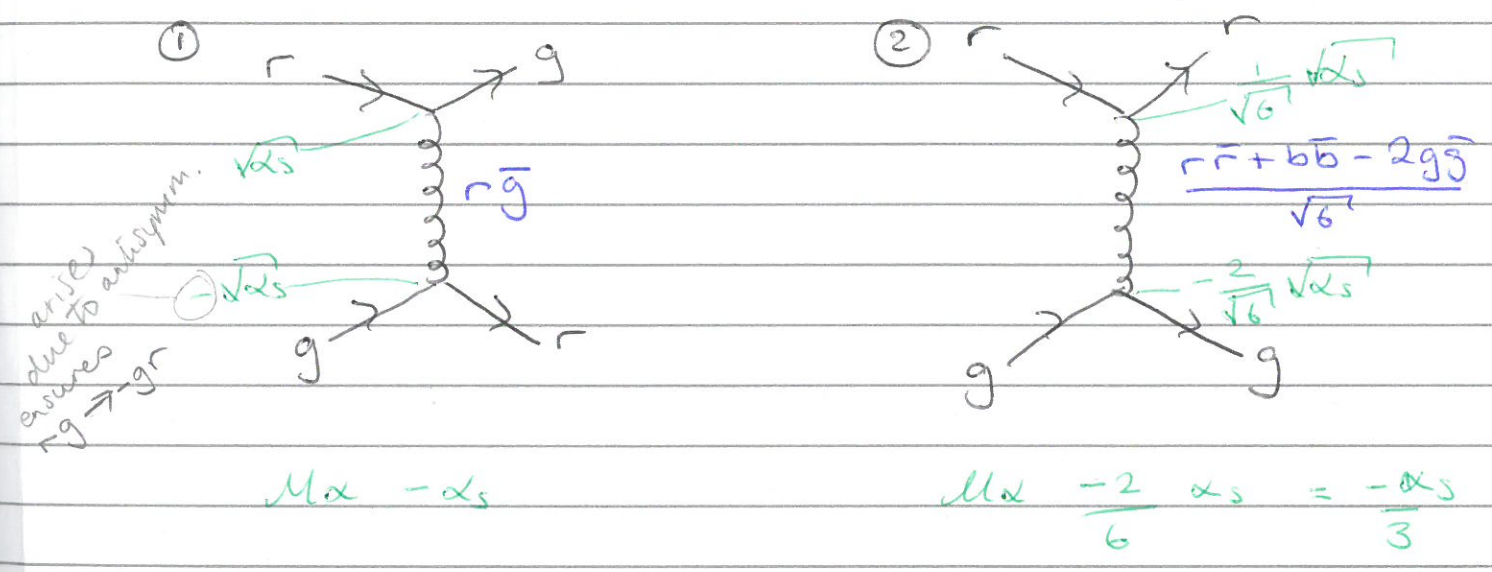 ① r g
√αs
r g̅
-√αs
g r
arises
due to antisymm.
ensures
rg → -gr
M α -αs
② r r
1/√6 √αs
(r r̅ + b b̅ - 2g g̅)/√6
-2/√6 √αs
g g
M α -2/6 αs = -αs/3